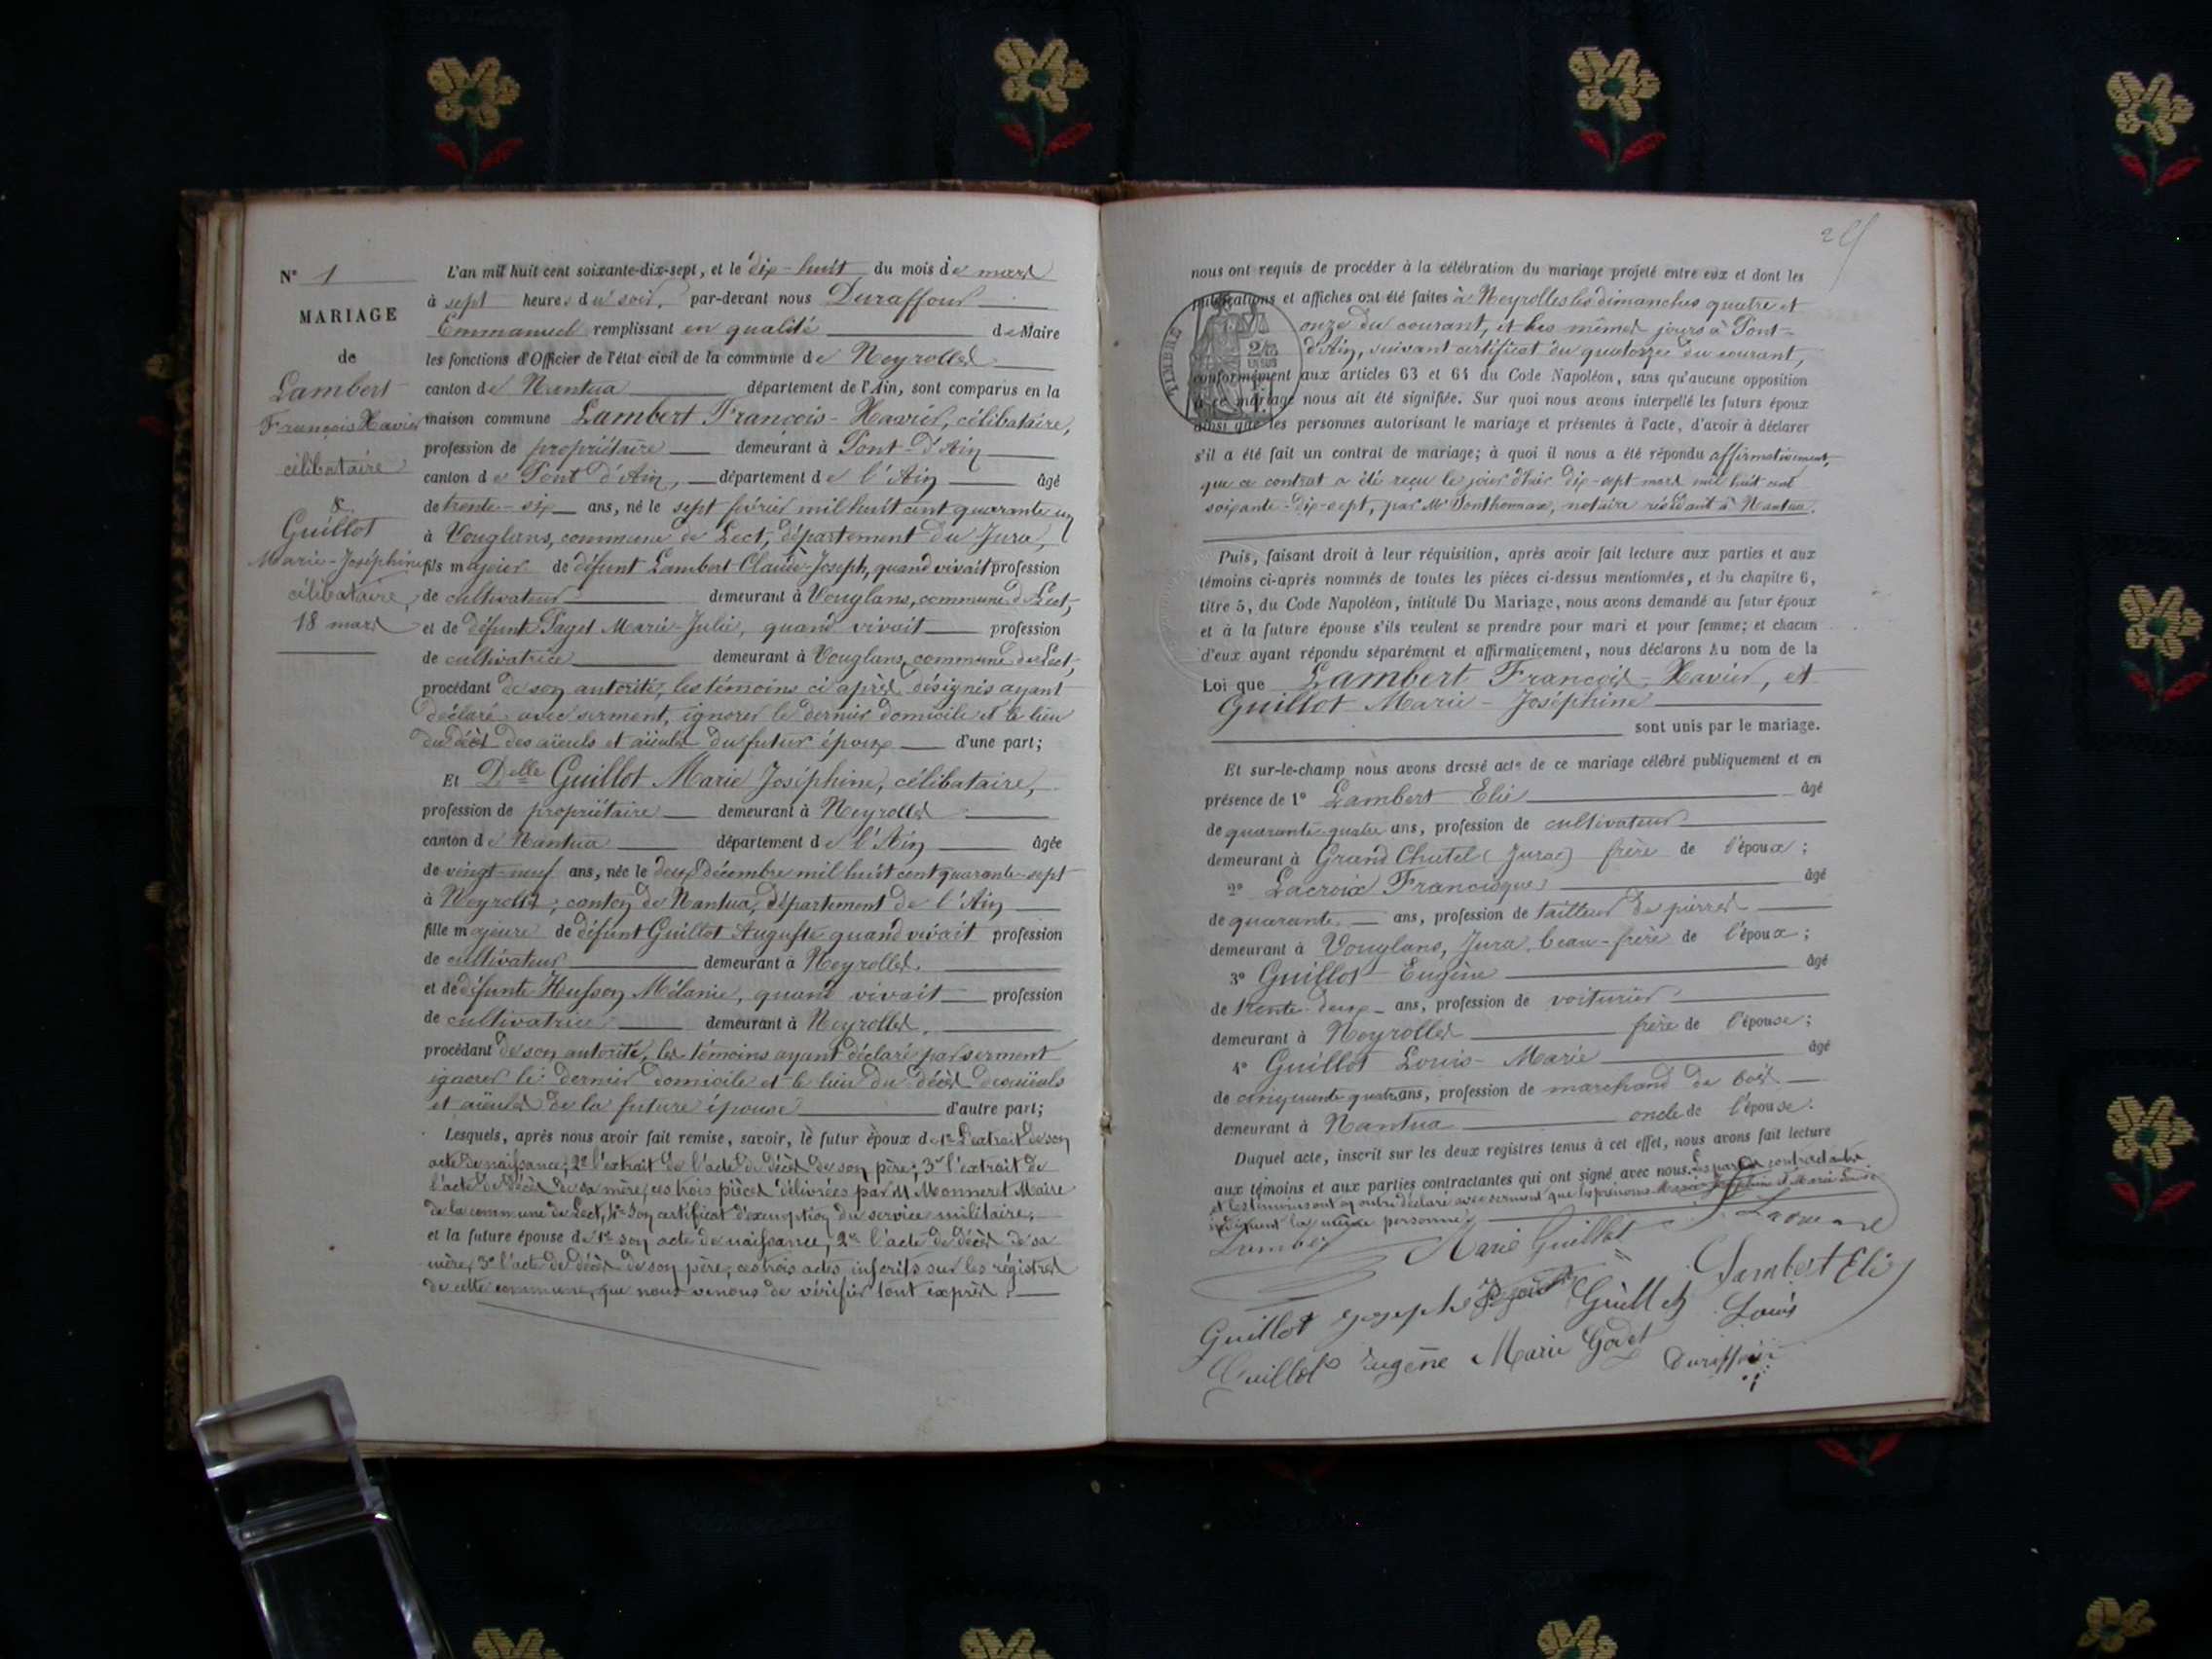 N° 1
MARIAGE
de
Lambert
François Xavier
célibataire
&
Guillot
Marie-Joséphine
célibataire
18 mars
L'an mil huit cent soixante-dix-sept, et le dix-huit du mois de mars
à sept heures du soir, par-devant nous Duraffour
Emmanuel remplissant en qualité de Maire
les fonctions d'Officier de l'état civil de la commune de Neyrolles
canton de Nantua département de l'Ain, sont comparus en la
maison commune Lambert François-Xavier, célibataire,
profession de propriétaire demeurant à Pont-d'Ain
canton de Pont d'Ain, département de l'Ain âgé
de trente-six ans, né le sept février mil huit cent quarante un
à Vouglans, commune de Lect, département du Jura,
fils majeur de défunt Lambert Claude-Joseph, quand vivait profession
de cultivateur demeurant à Vouglans, commune de Lect,
et de défunte Paget Marie-Julie, quand vivait profession
de cultivatrice demeurant à Vouglans, commune de Lect,
procédant de son autorité, les témoins ci après désignés ayant
déclaré avec serment, ignorer le dernier domicile et le lieu
du décès des aïeuls et aïeules du futur époux d'une part;
Et Delle Guillot Marie Joséphine, célibataire,
profession de propriétaire demeurant à Neyrolles
canton de Nantua département de l'Ain âgée
de vingt-neuf ans, née le deux décembre mil huit cent quarante-sept
à Neyrolles, canton de Nantua, département de l'Ain
fille majeure de défunt Guillot Auguste quand vivait profession
de cultivateur demeurant à Neyrolles.
et de défunte Husson Mélanie, quand vivait profession
de cultivatrice demeurant à Neyrolles,
procédant de son autorité, les témoins ayant déclaré par serment
ignorer le dernier domicile et le lieu du décès des aïeuls
et aïeules de la future épouse d'autre part;
Lesquels, après nous avoir fait remise, savoir, le futur époux de 1° L'extrait de son
acte de naissance; 2° l'extrait de l'acte de décès de son père; 3° l'extrait de
l'acte de décès de sa mère, ces trois pièces délivrées par M Monneret Maire
de la commune de Lect, 4° Son certificat d'exemption du service militaire;
et la future épouse de 1° son acte de naissance, 2° l'acte de décès de sa
mère, 3° l'acte de décès de son père, ces trois actes inscrits sur les régistres
de cette commune, que nous venons de vérifier tout exprès.
nous ont requis de procéder à la célébration du mariage projeté entre eux et dont les
publications et affiches ont été faites à Neyrolles les dimanches quatre et
onze du courant, et les mêmes jours à Pont-
d'Ain, suivant certificat du quatorze du courant,
TIMBRE
conformément aux articles 63 et 64 du Code Napoléon, sans qu'aucune opposition
à ce mariage nous ait été signifiée. Sur quoi nous avons interpellé les futurs époux
ainsi que les personnes autorisant le mariage et présentes à l'acte, d'avoir à déclarer
s'il a été fait un contrat de mariage; à quoi il nous a été répondu affirmativement,
que ce contrat a été reçu le jour d'hier dix-sept mars mil huit cent
soixante-dix-sept, par Me Ponthonnax, notaire résidant à Nantua.
Puis, faisant droit à leur réquisition, après avoir fait lecture aux parties et aux
témoins ci-après nommés de toutes les pièces ci-dessus mentionnées, et du chapitre 6,
titre 5, du Code Napoléon, intitulé Du Mariage, nous avons demandé au futur époux
et à la future épouse s'ils veulent se prendre pour mari et pour femme; et chacun
d'eux ayant répondu séparément et affirmativement, nous déclarons Au nom de la
Loi que Lambert François-Xavier, et
Guillot Marie-Joséphine
sont unis par le mariage.
Et sur-le-champ nous avons dressé acte de ce mariage célébré publiquement et en
présence de 1° Lambert Elie âgé
de quarante-quatre ans, profession de cultivateur
demeurant à Grand Chatel (Jura) frère de l'époux;
2° Lacroix Francisque âgé
de quarante ans, profession de tailleur de pierres
demeurant à Vouglans, Jura, beau-frère de l'époux;
3° Guillot Eugène âgé
de trente-deux ans, profession de voiturier
demeurant à Neyrolles frère de l'épouse;
4° Guillot Louis-Marie âgé
de cinquante quatre ans, profession de marchand de bois
demeurant à Nantua oncle de l'épouse.
Duquel acte, inscrit sur les deux registres tenus à cet effet, nous avons fait lecture
aux témoins et aux parties contractantes qui ont signé avec nous. Les parties contractantes
et les témoins ont en outre déclaré avec serment que les prénoms Marie Joséphine et Marie Louise
indiquent la même personne.
Lambert Marie Guillot
Lambert Elie
Guillot Joseph Guillot Louis
Guillot Eugène Marie Godet Duraffour